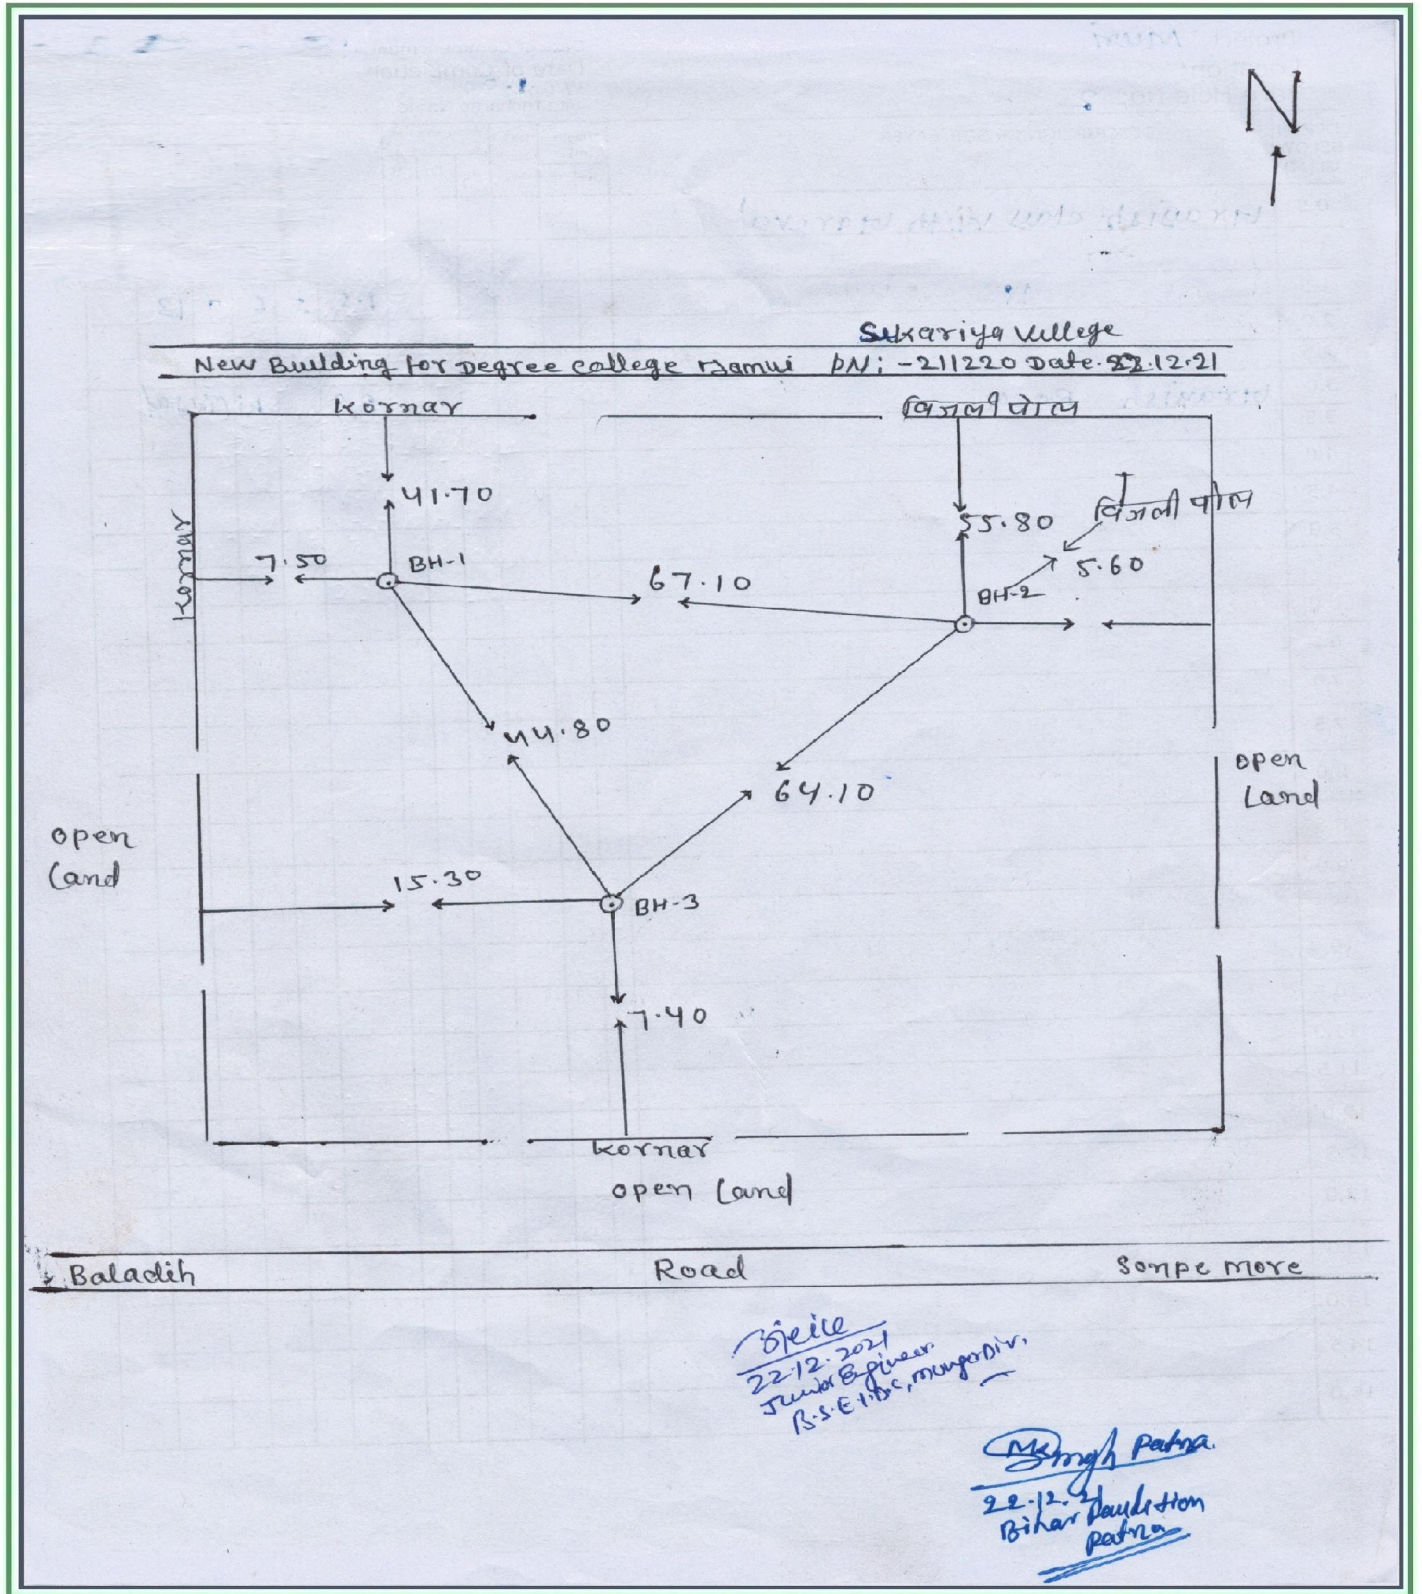 N
Sukariya Vellege
New Building for Degree college Jamui PN: -211220 Date. 22.12.21
Kornar
बिजली पोल
41.70
Kornar
7.50
BH-1
55.80
बिजली पोल
67.10
5.60
BH-2
44.80
64.10
open
Land
open
Land
15.30
BH-3
7.40
Kornar
open Land
Baladih Road Sonpe more
22.12.2021
Junior Engineer
B.S.E.I.D.C, Munger Div.
MKSingh Patna.
22.12.21
Bihar
Patna